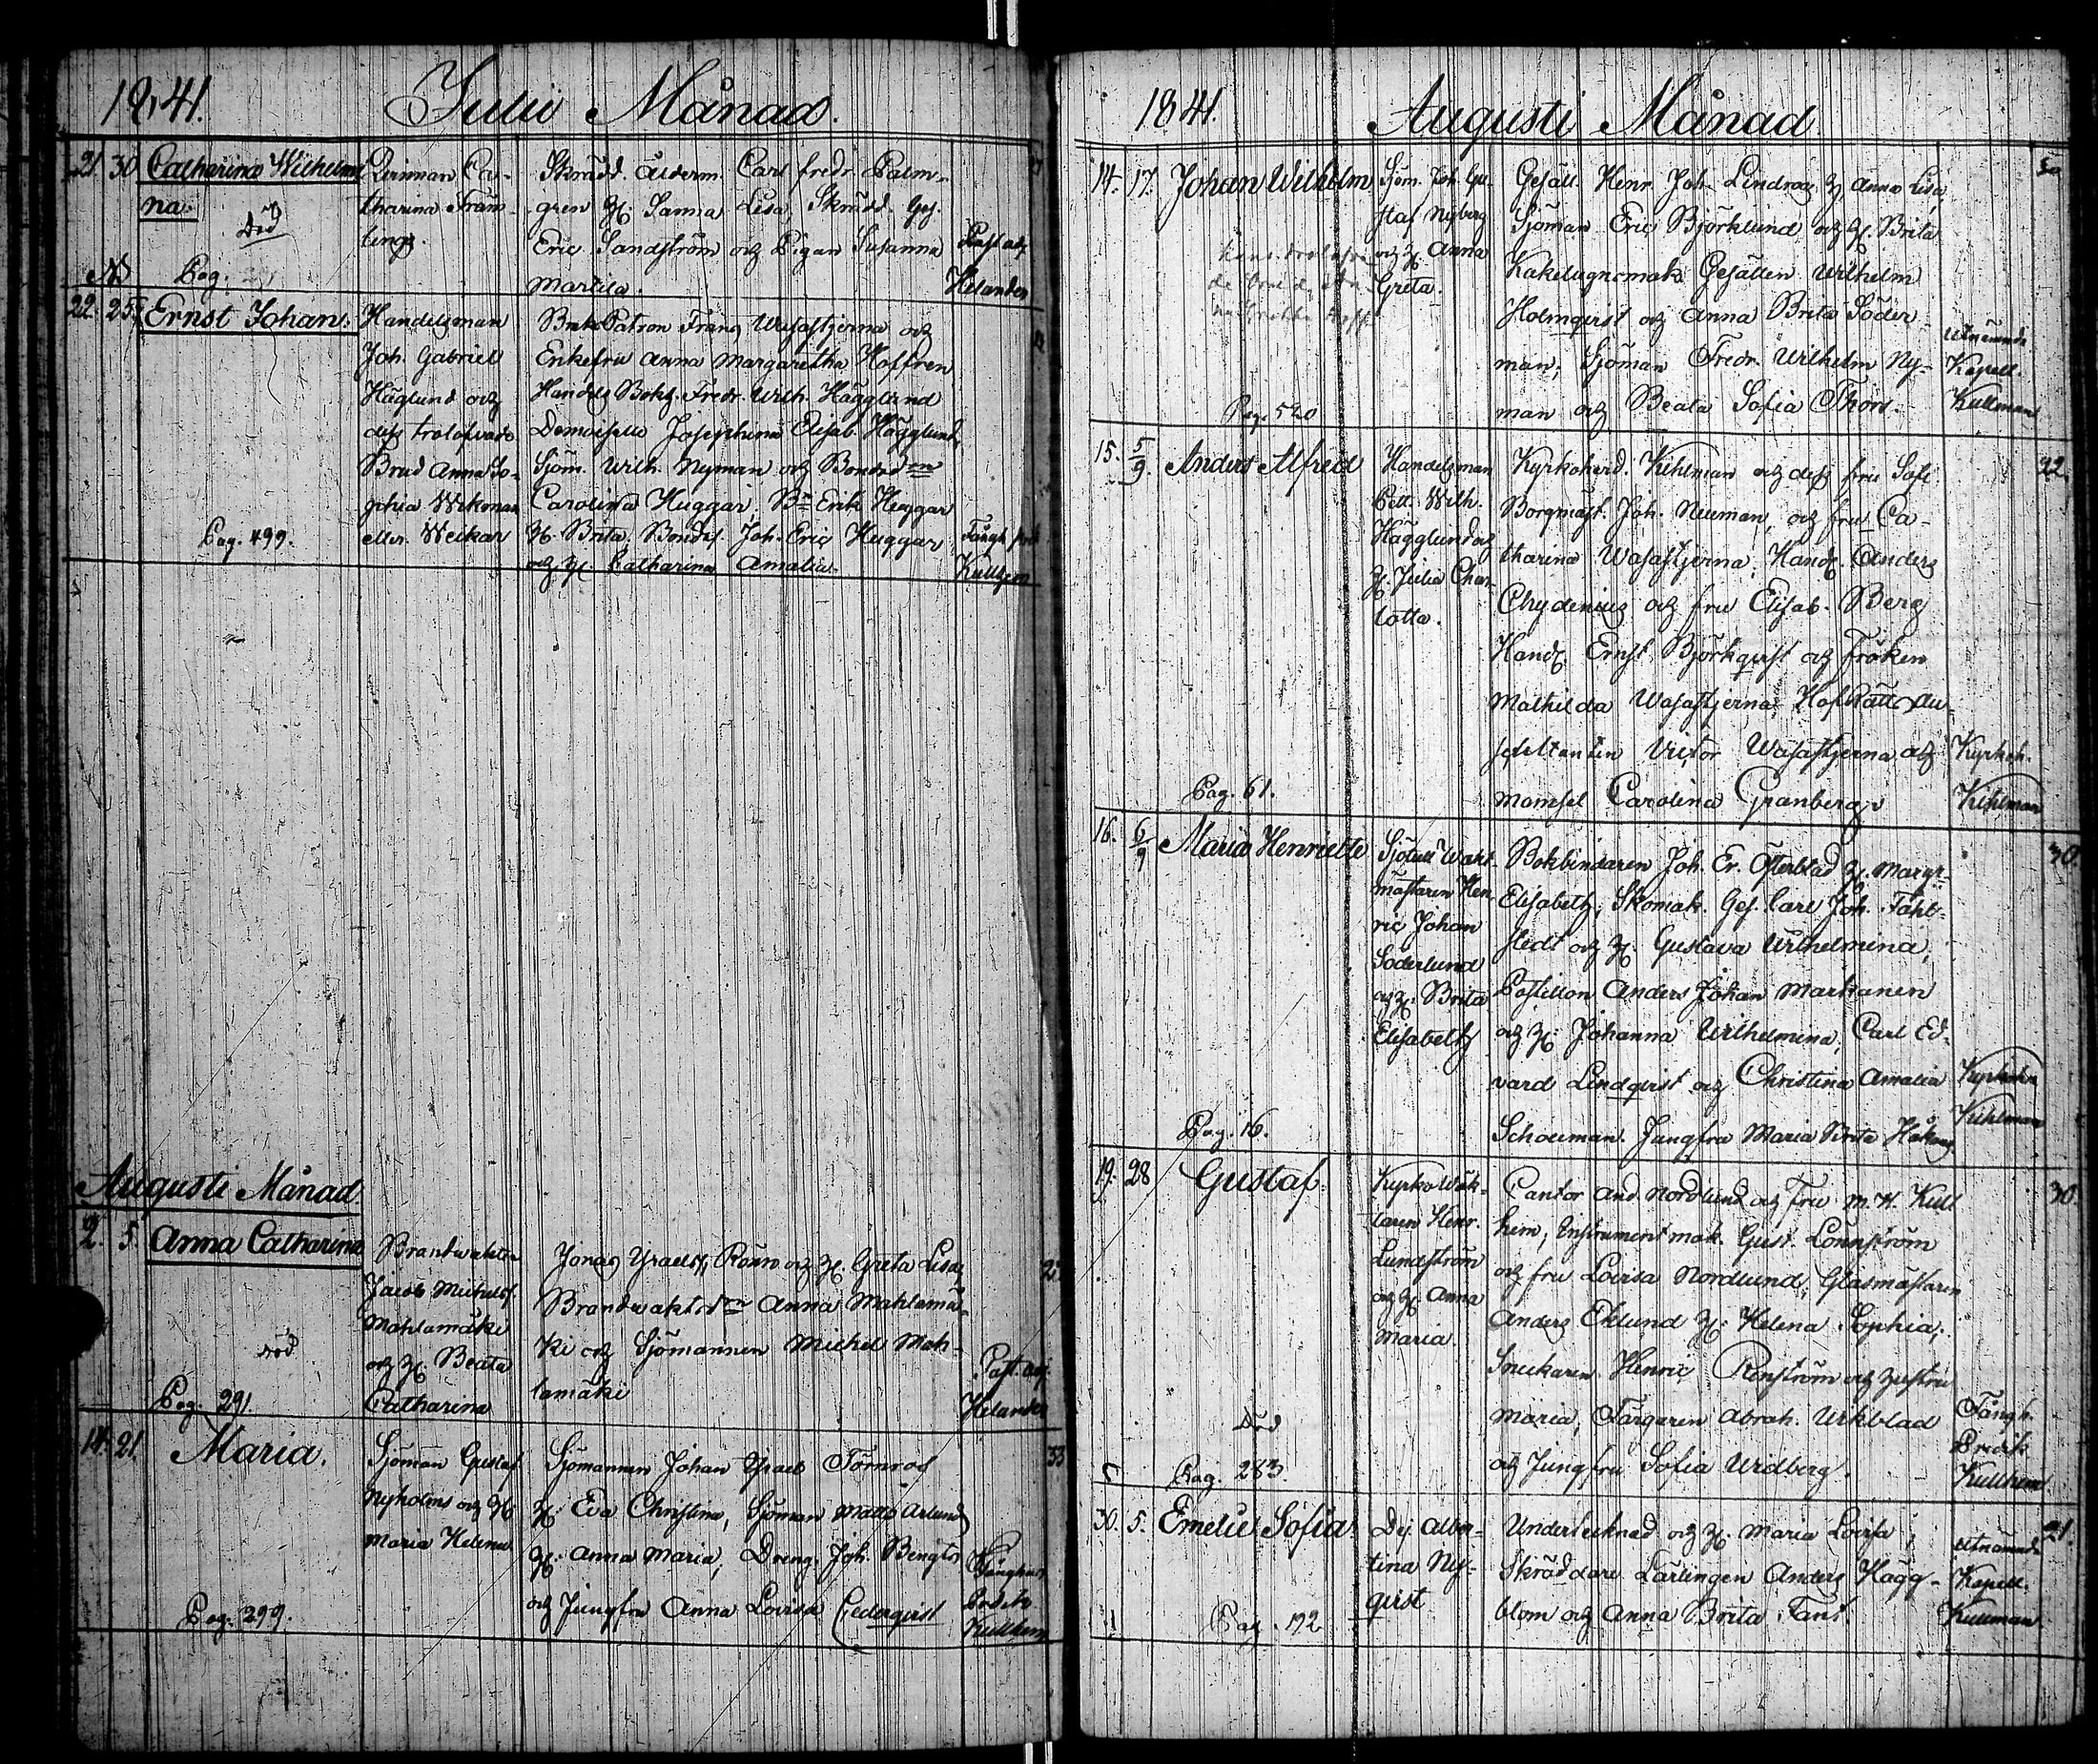 1841. Julii Månad.
21. 30 Catharina Wilhelmi
na.
Död
Pag.
Qvinnan Ca-
tharina Främ-
ling.
Skrädd. Ålderm. Carl Fredr. Palm-
gren H. Sanna Lisa, Skrädd. Ges.
Eric Sandström och Pigan Susanna
Martila.
Past. adj.
Helander
22. 25. Ernst Johan.
Pag. 499.
Handelsman
Joh. Gabriel
Häglund och
dess trolofvade
Brud Anna So-
phia Wikman
eller Weikar
Bruks Patron Frans Wasastjerna och
Enkefru Anna Margaretha Hoffren
Handels Bokh. Fredr. Wilh. Hägglund
Demoiselle Josephina Elisab. Hägglund,
Sjöm. Wilh. Nyman och Bonded:r
Carolina Huggar. B:n Erik Huggar
H. Brita. Bondes. Joh. Eric Huggar
och H. Catharina Amalia.
Tängh. pred.
Kullhem
Augusti Månad
2. 5. Anna Catharina
död
Pag. 291.
Brandwakten
Jacob Michels.
Mahlamäki
och H. Beata
Catharina
Jonas Israels. och H. Greta Lisa,
Brandwaktsd:r Anna Mahlamä-
ki och Sjömannen Michel Mah-
lamäki
Past. adj.
Helander
14. 21. Maria.
Pag. 299.
Sjöman Gustaf
Nyholms och H.
Maria Helena
Sjömannen Johan Israel Törnros
H. Eva Christina, Sjöman Matts Arlund
H. Anna Maria, Dreng. Joh. Bengts
och Jungfru Anna Lovisa Cederqvist
Fänghus
Predik.
Kullhem
33
1841. Augusti Månad
14. 17. Johan Wilhelm
Pag. 520
Sjöm. Joh. Gu-
staf Nyberg
och H. Anna
Greta.
Gesäll. Henr. Joh. Lindroos H. Anna Lisa,
Sjöman Eric Björklund och H. Brita
Kakelugnsmak. Gesällen Wilhelm
Holmqvist och Anna Brita Söder-
man, Sjöman Fredr. Wilhelm Ny-
man och Beata Sofia Thors.
utnämnde
Kapell.
Kullman
15. 5/9. Anders Alfred
Pag. 61.
Handelsman
Pett. Wilh.
Hägglund och
H. Julia Char-
lotta.
Kyrkoherd. Kihlman och dess fru Sofi.
Borgmäst. Joh. Neuman, och fru Ca-
tharina Wasastjerna, Handl. Anders
Chydenius och fru Elisab. Berg
Handl. Ernst Björkqvist och Fröken
Mathilda Wasastjerna, Hof Rätts Au-
scultanten Victor Wasastjerna och
mamsel Carolina Granberg.
Kyrkoh.
Kihlman
32
16. 6/9 Maria Henriette
Pag. 16.
Sjötull Wakt-
mästaren Hen-
ric Johan
Söderlund
och H. Brita
Elisabeth
Bokbindaren Joh. Er. Österblad H. Margr.
Elisabeth, Skomak. Ges. Carl Joh. Fahl-
stedt och H. Gustava Wilhelmina,
Postillon Anders Johan Markanen
och H. Johanna Wilhelmina, Carl Ed-
vard Lindqvist och Christina Amalia
Schoeman. Jungfru Maria Brita Håkans
Kyrkoh.
Kihlman
30.
19. 28 Gustaf.
Död
Pag. 283
Kyrko Wäk-
taren Henr.
Lundström
och H. Anna
Maria.
Cantor And. Nordlund och Fru M. H. Kull
hem, Instrumentmak. Gust. Lönnström
och fru Lovisa Nordlund, Glasmästaren
Anders Eklund H. Helena Sophia,
Snickaren Henric Renström och hustru
Maria, Färgaren Abrah. Wikblad
och Jungfru Sofia Widberg.
Fängh.
Predik.
Kullhem
30.
30. 5. Emelie Sofia
Pag. 192
Pig. Alber-
tina Ny-
qvist
Undertecknad och H. Maria Lovisa,
Skräddare Lärlingen Anders Hägg-
blom och Anna Brita Fant.
utnämnde
Kapell.
Kullman
21.